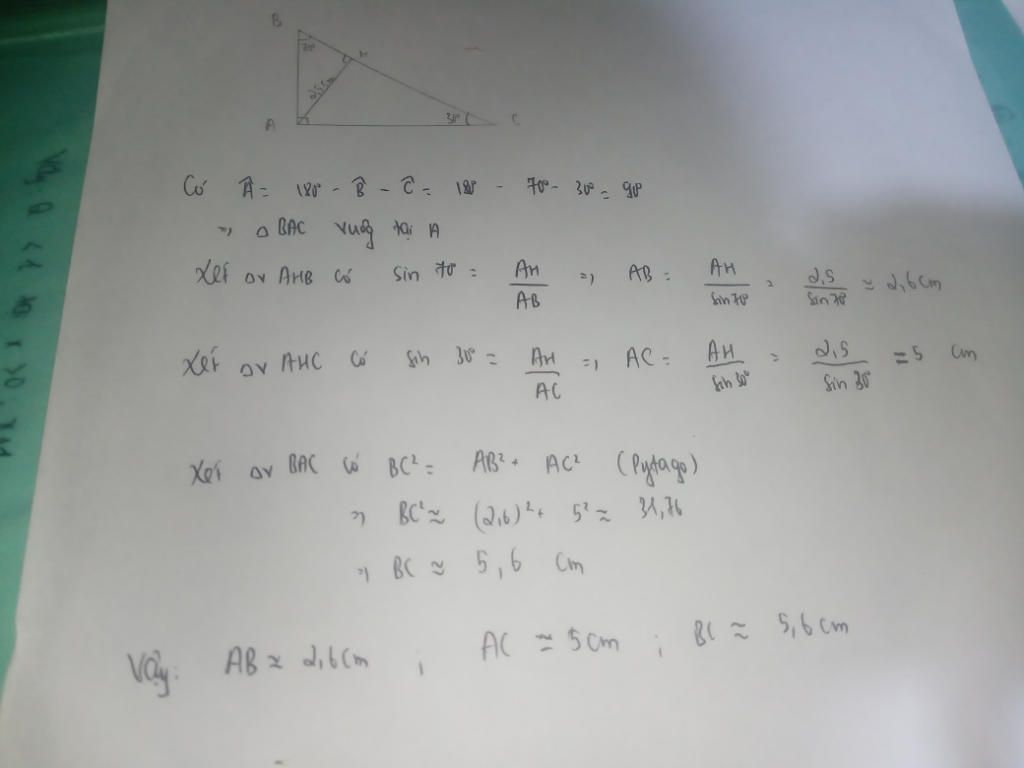 B
70°
H
2,5cm
A
30°
C
Có Â = 180° - B̂ - Ĉ = 180° - 70° - 30° = 90°
=> △ BAC vuông tại A
Xét △v AHB có sin 70° = AH/AB => AB = AH/sin70° = 2,5/sin70° ≈ 2,6cm
Xét △v AHC có sin 30° = AH/AC => AC = AH/sin30° = 2,5/sin30° = 5 cm
Xét △v BAC có BC² = AB² + AC² (Pytago)
=> BC² ≈ (2,6)² + 5² ≈ 31,76
=> BC ≈ 5,6 cm
Vậy: AB ≈ 2,6cm ; AC ≈ 5cm ; BC ≈ 5,6cm